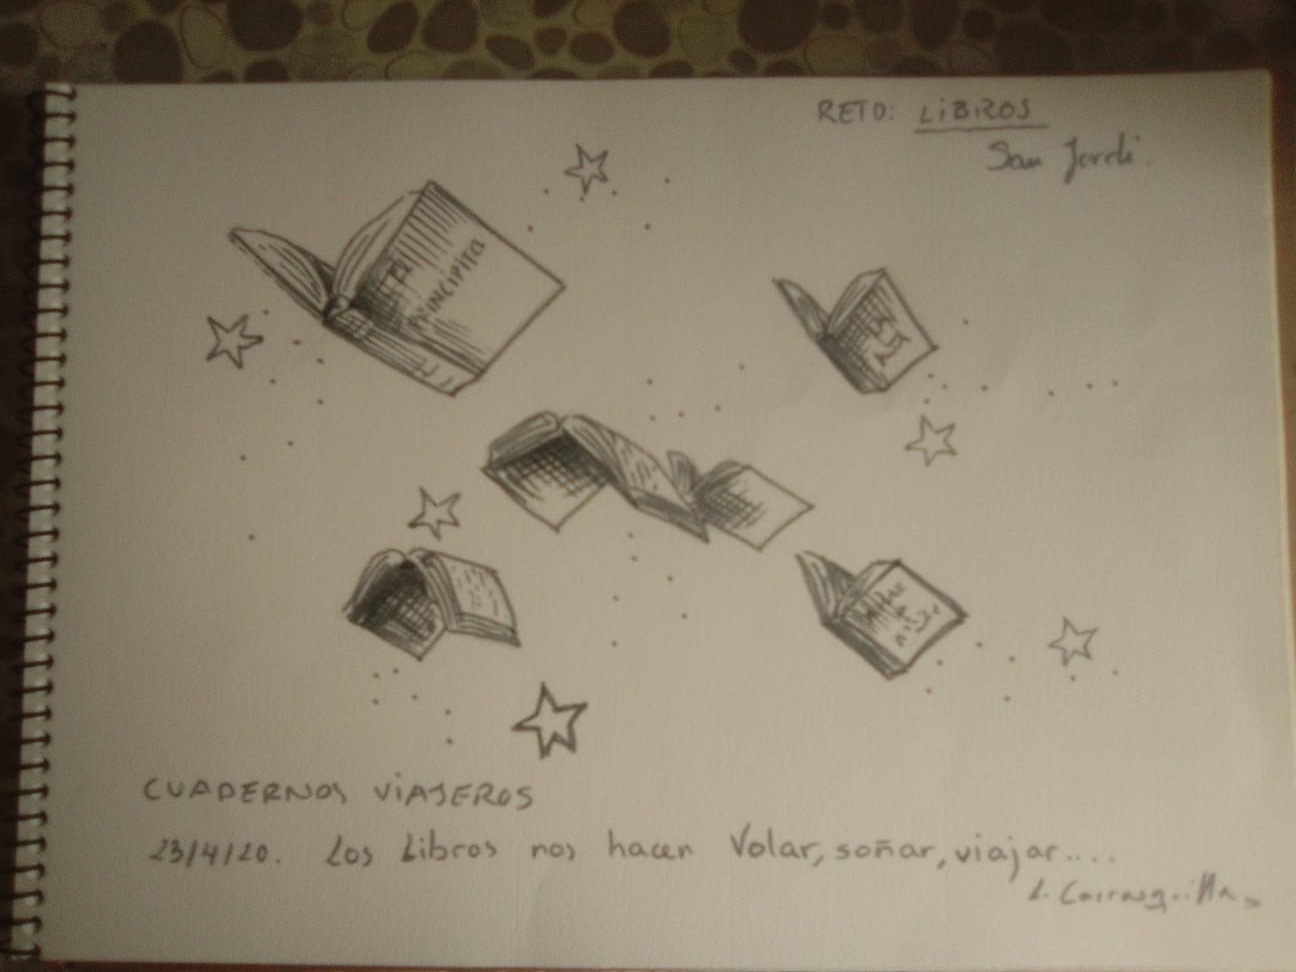 RETO: LIBROS
San Jordi.
El
PRINCIPITO
CUADERNOS VIAJEROS
23/4/20. Los Libros nos hacen Volar, soñar, viajar....
L. Carrasquilla